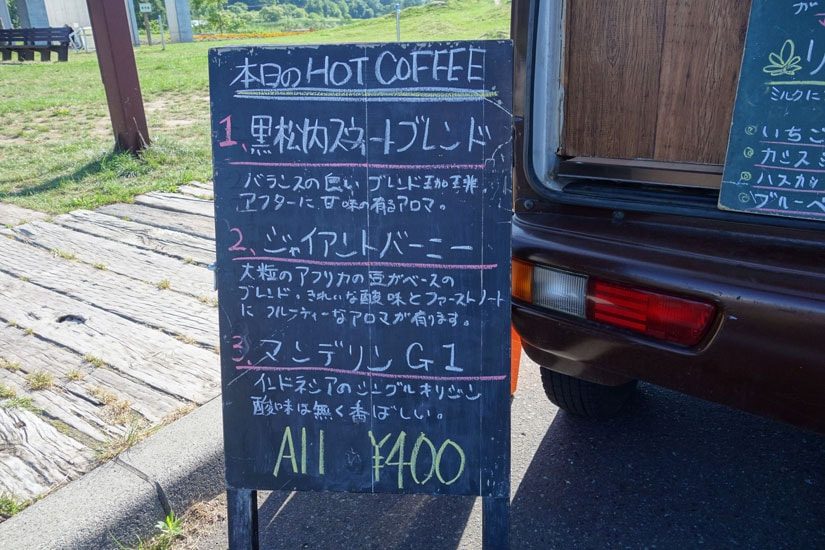 本日のHOT COFFEE
1、黒松内スウィートブレンド
バランスの良い ブレンド珈琲。
アフターに甘味の有るアロマ。
2、ジャイアントバーニー
大粒のアフリカの豆がベースの
ブレンド・きれいな酸味とファーストノート
に フルーティーなアロマが有ります。
3、マンデリンG1
インドネシアのシングルオリジン
酸味は無く香ばしい。
All ¥400
が
リ
ミルクに
いちご
カシス
ハスカッ
ブルーベ